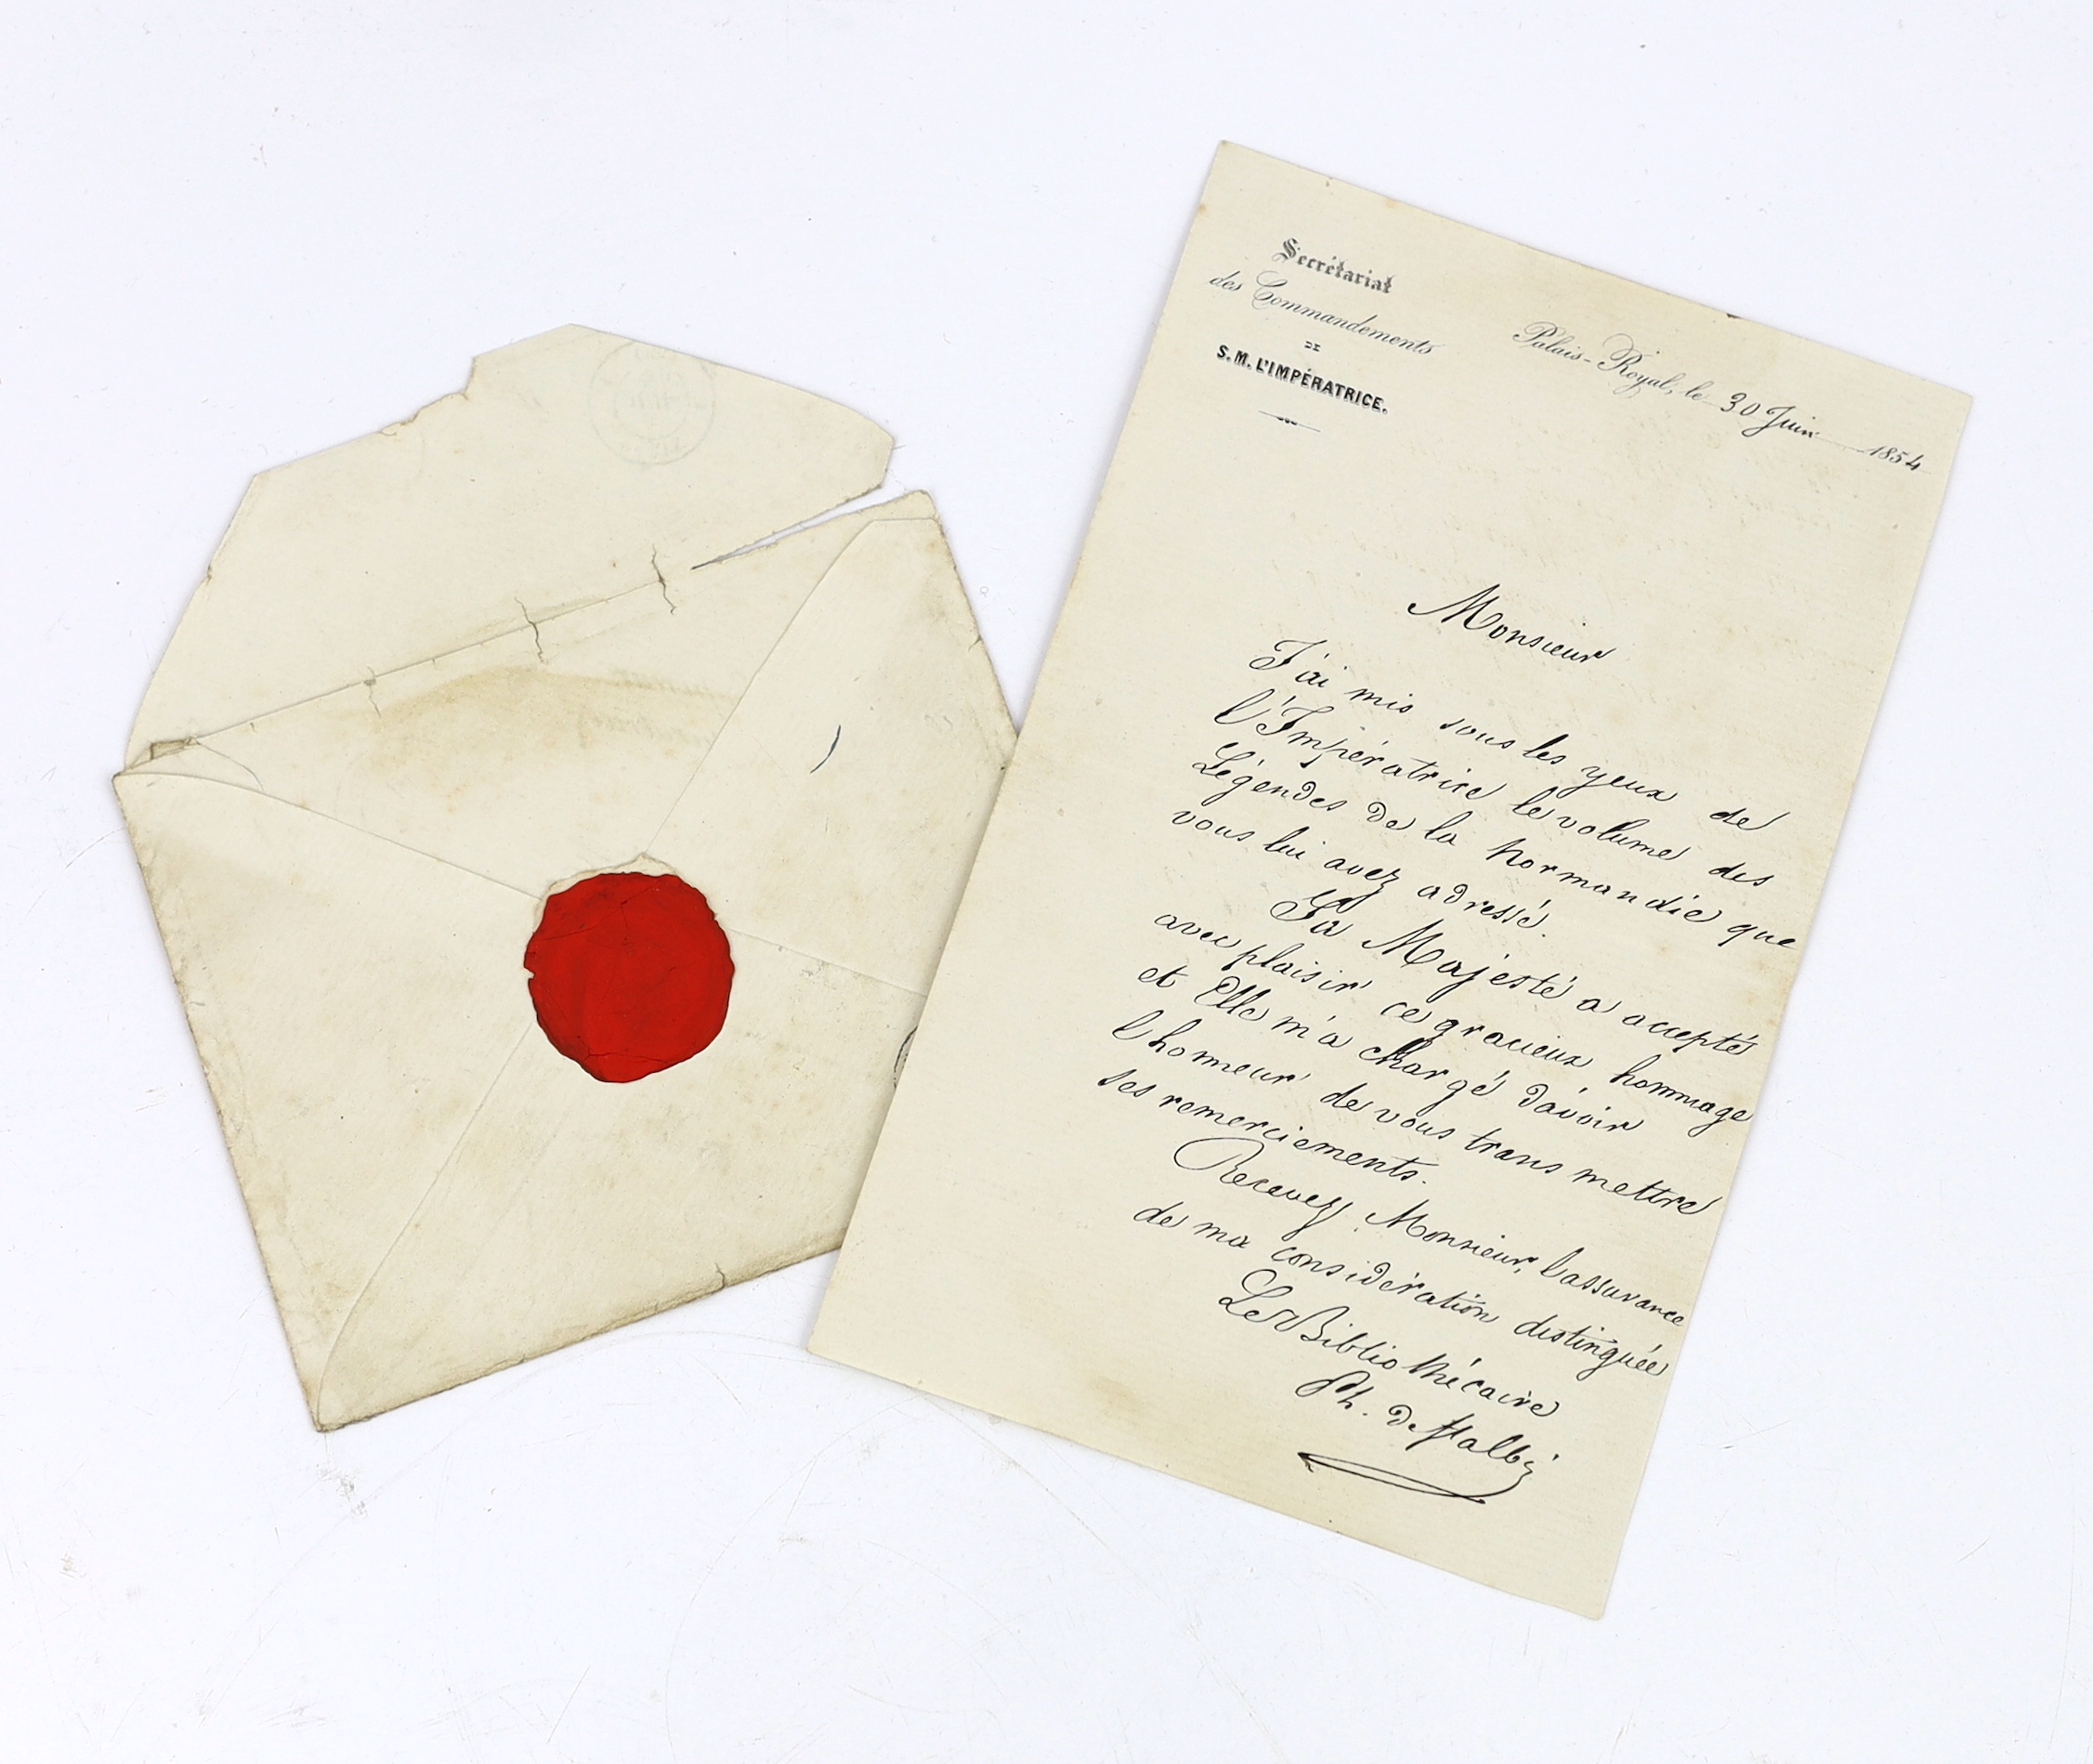 Secrétariat
des Commandements
DE
S. M. L'IMPÉRATRICE.
Palais-Royal, le 30 Juin 1854
Monsieur
J'ai mis sous les yeux de
l'Impératrice le volume des
Légendes de la Normandie que
vous lui avez adressé.
Sa Majesté a accepté
avec plaisir ce gracieux hommage
et Elle m'a chargé d'avoir
l'honneur de vous transmettre
ses remerciements.
Recevez, Monsieur, l'assurance
de ma considération distinguée
Le Bibliothécaire
Ph. de